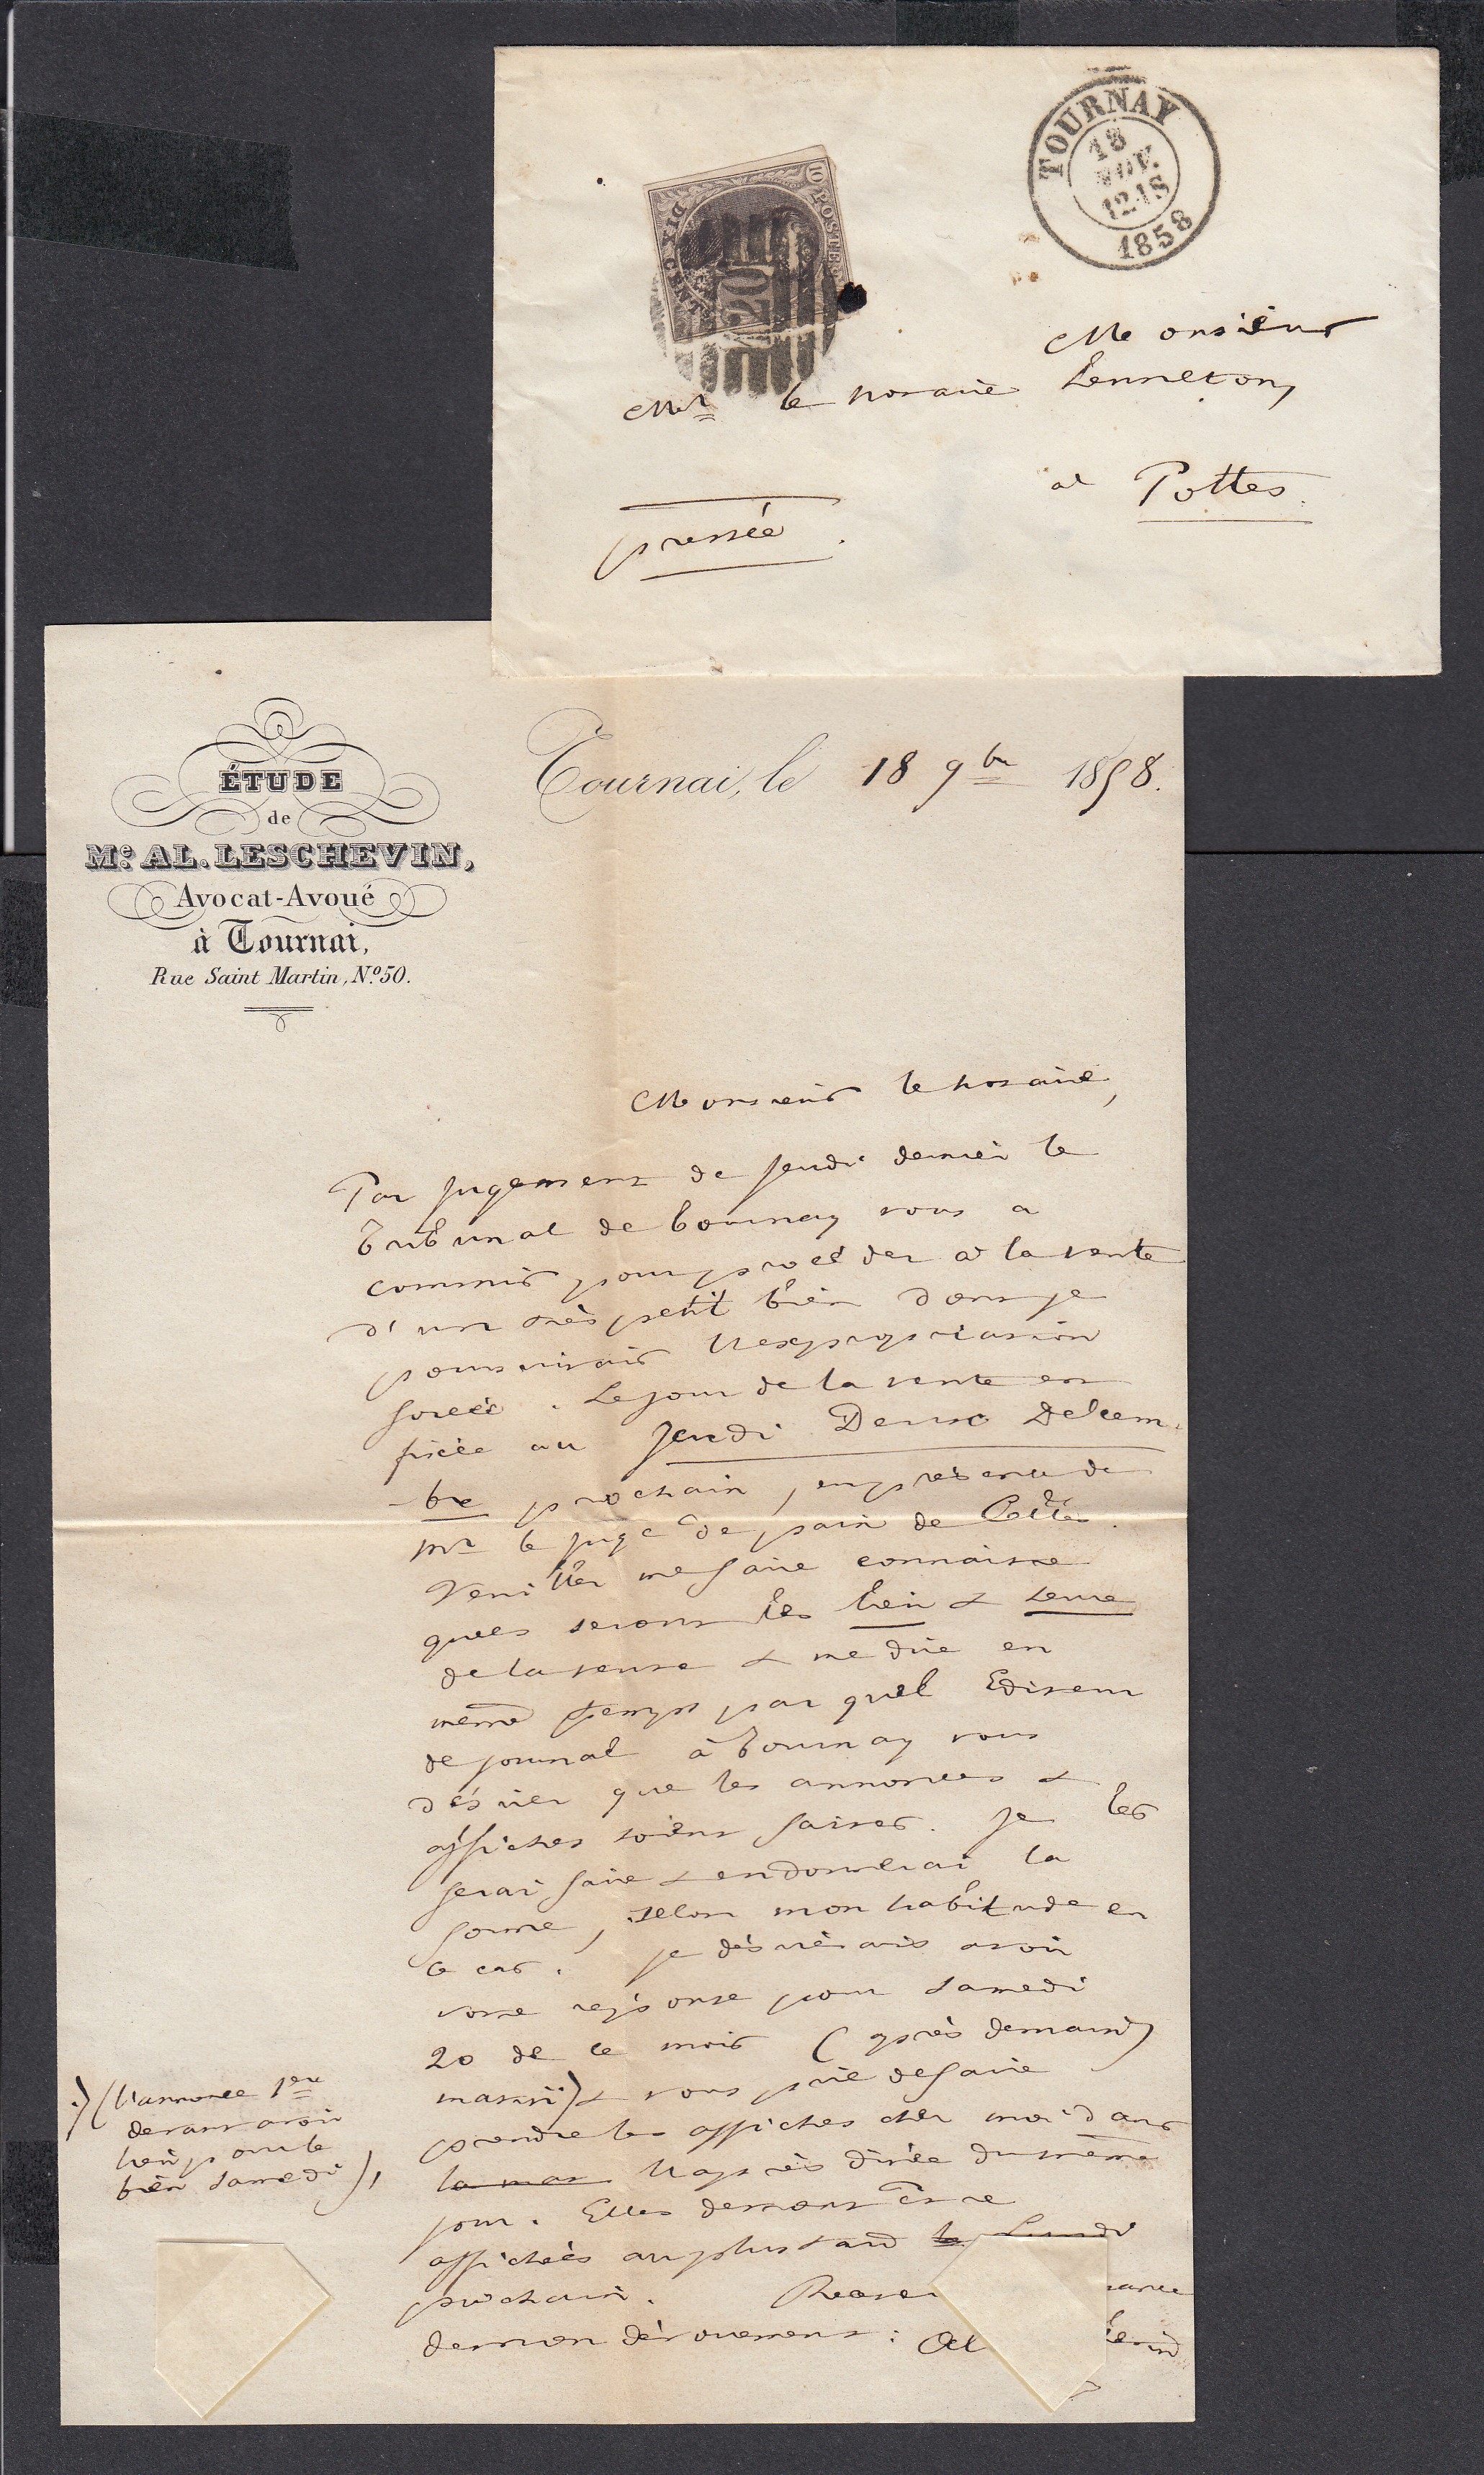 TOURNAY
18
NOV.
12-1S
1858
10 POSTES
DIX CENTS
120
Monsieur
Mr le notaire Lenneton,
à Pottes.
pressée.
ÉTUDE
de
Me. AL. LESCHEVIN,
Avocat-Avoué
à Tournai,
Rue Saint Martin, No. 50.
Tournai, le 18 9bre 1858.
Monsieur le notaire,
Par jugement de jeudi dernier le
Tribunal de Tournay vous a
commis pour procéder à la vente
d'un très petit bien dont je
poursuivais l'expropriation
forcée. Le jour de la vente est
fixée au Jeudi Deux Décem-
-bre prochain, en présence de
Mr le juge de paix de Celles.
Veuillez me faire connaitre
quels seront les lieu & heure
de la vente & me dire en
même temps par quel Editeur
de journal à Tournay vous
désirez que les annonces &
affiches soient faites. Je les
ferai faire & en donnerai la
forme, selon mon habitude en
ce cas. Je désirerais avoir
votre réponse pour samedi
20 de ce mois (après demain)
matin ·/· & vous prie de faire
prendre les affiches chez moi dans
la mat l'après dinée du même
jour. Elles devront être
affichées au plus tard le Lundi
prochain.
de mon dévouement : Al
·/· (l'annonce 1ere
devant avoir
lieu pour le
bien samedi),